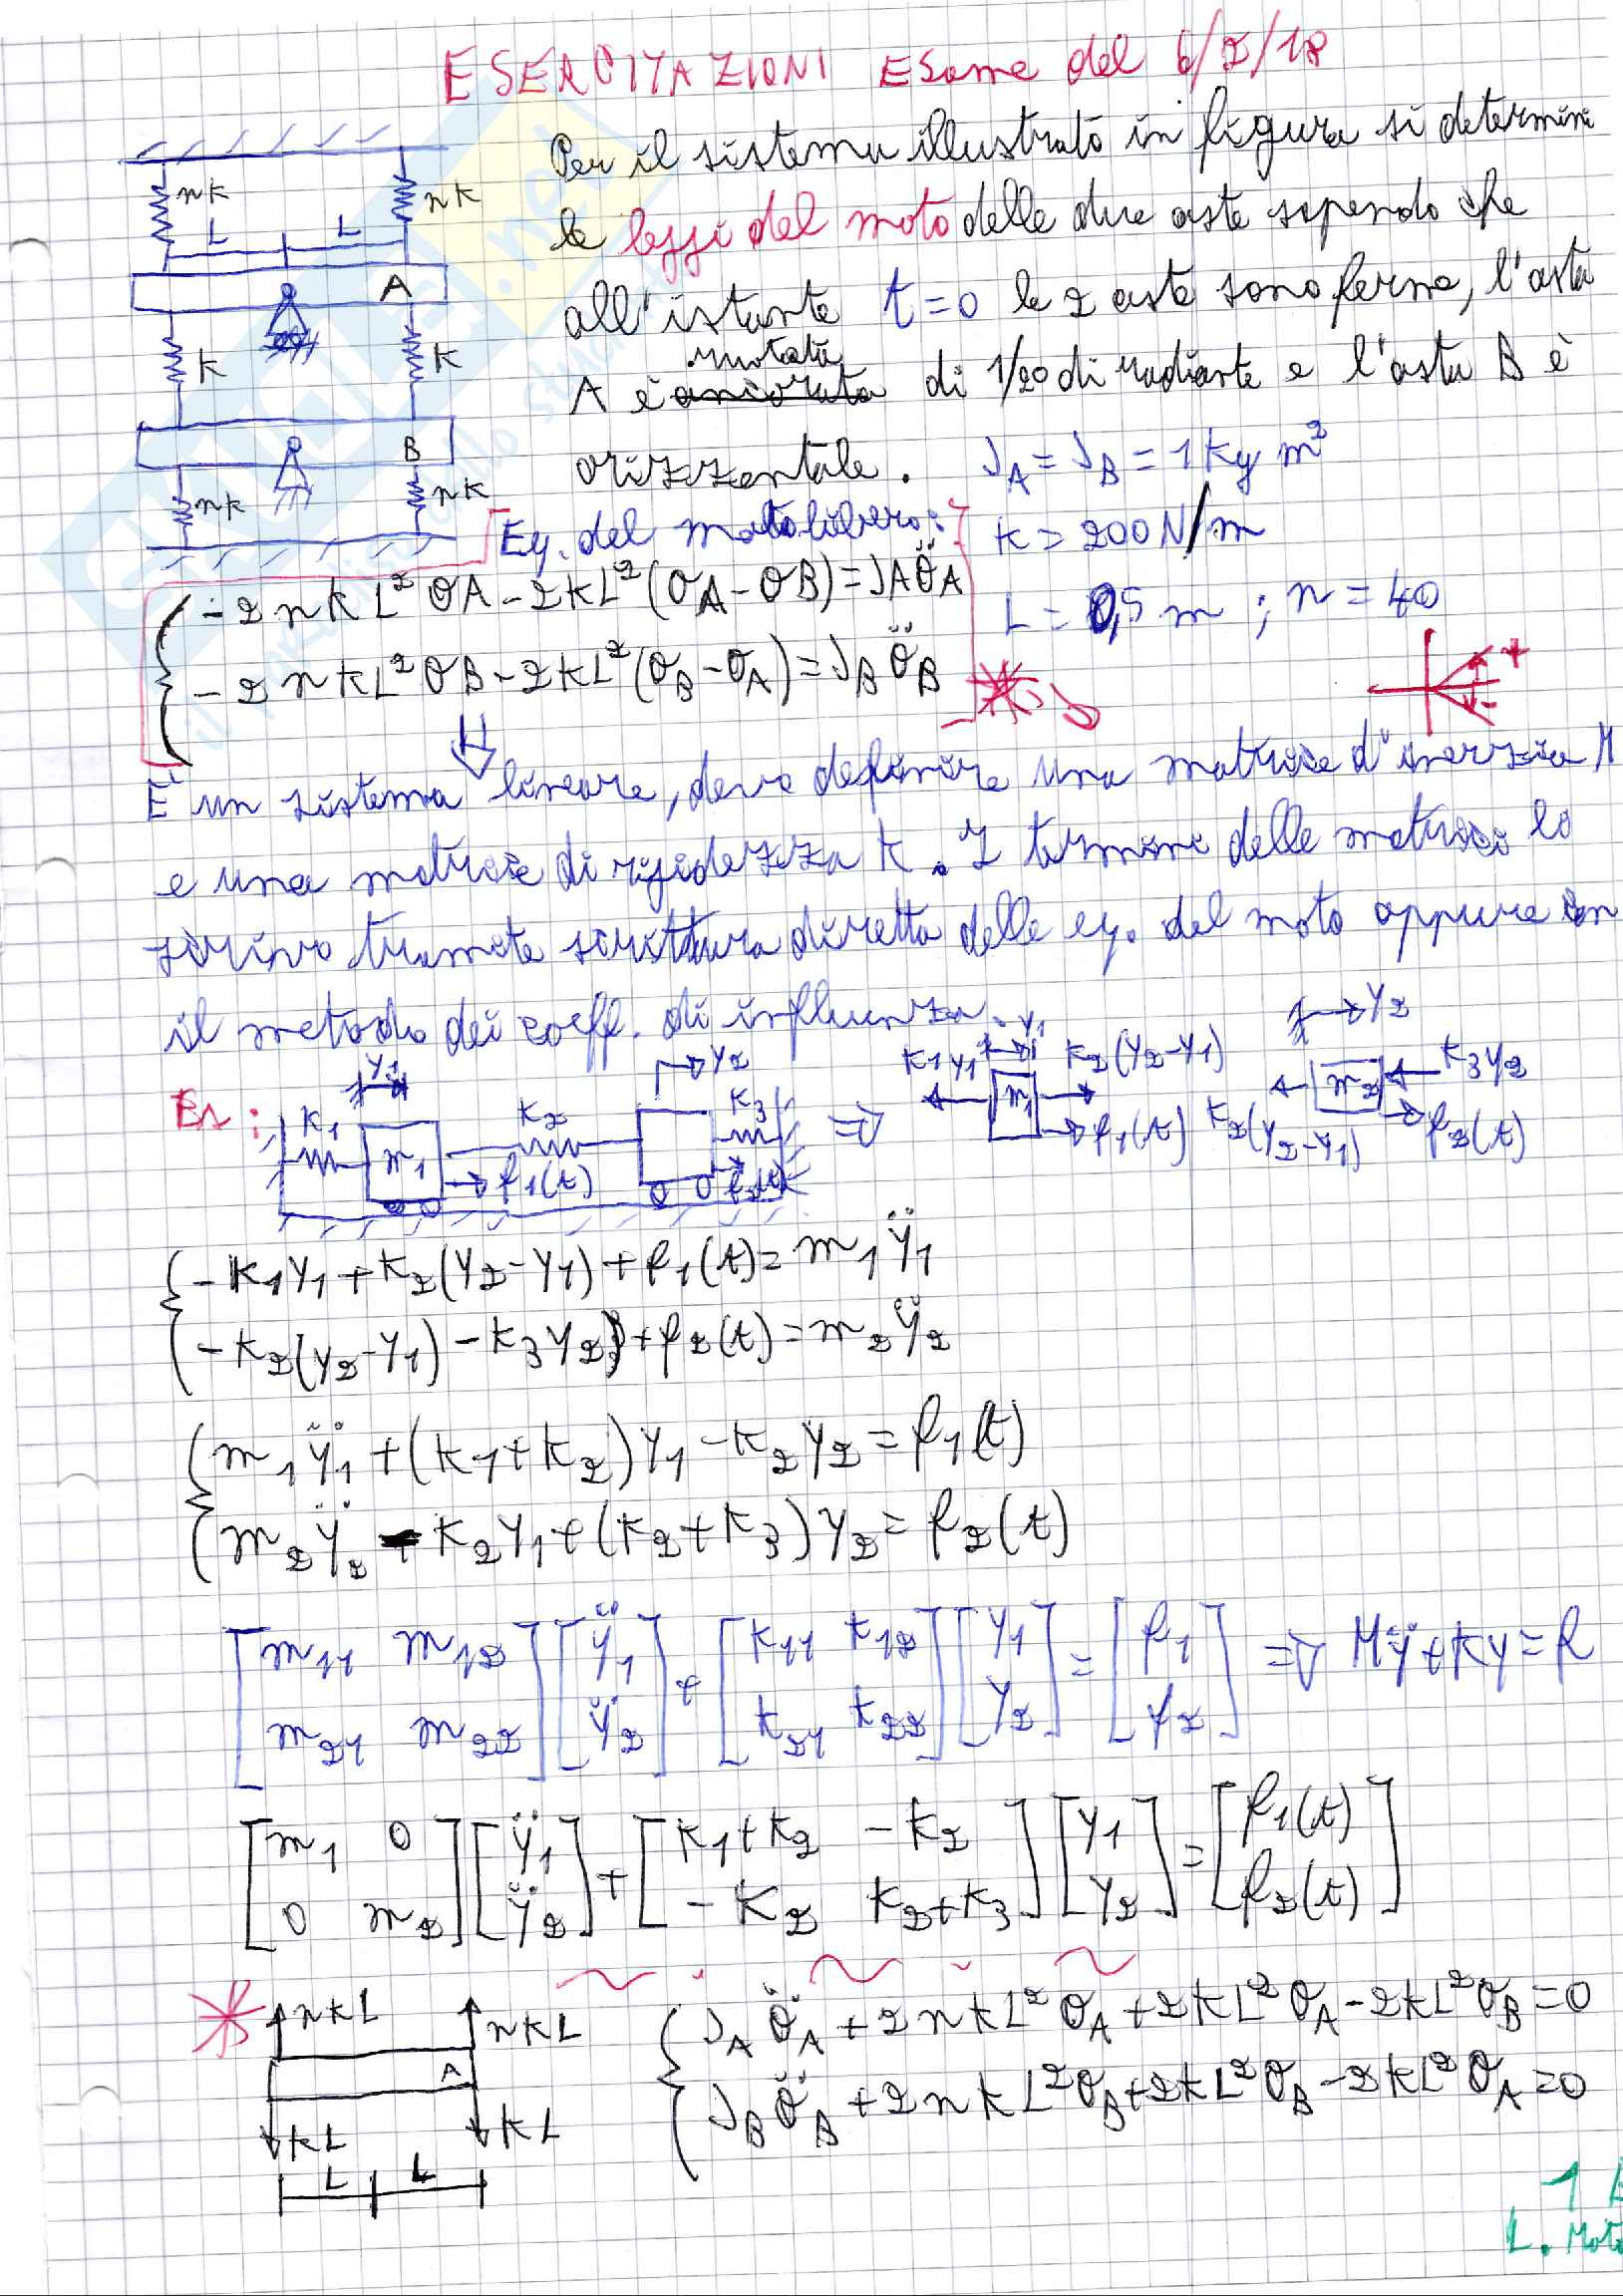 ESERCITAZIONI Esame del 6/2/18
Per il sistema illustrato in figura si determini
le leggi del moto delle due aste sapendo che
all'istante t=0 le 2 aste sono ferme, l'asta
ruotata
A è di 1/20 di radiante e l'asta B è
orizzontale. JA = JB = 1 kg m²
nk nk
L L
A
k k
B
nk nk
Eq. del moto libero:
k = 200 N/m
L = 0,5 m ; n = 40
-2nkL²θA - 2kL²(θA-θB) = JAθ̈A
-2nkL²θB - 2kL²(θB-θA) = JBθ̈B
+
-
È un sistema lineare, devo definire una matrice d'inerzia M
e una matrice di rigidezza K. I termini delle matrici lo
scrivo tramite scrittura diretta delle eq. del moto oppure con
il metodo dei coeff. di influenza.
Es:
y1 y2
k1 m1 k2 k3
f1(t) f2(t)
⇒
k1y1 y1 k2(y2-y1) m1 f1(t)
y2 m2 k3y2 k2(y2-y1) f2(t)
-k1y1 + k2(y2-y1) + f1(t) = m1ÿ1
-k2(y2-y1) - k3y2 + f2(t) = m2ÿ2
m1ÿ1 + (k1+k2)y1 - k2y2 = f1(t)
m2ÿ2 - k2y1 + (k2+k3)y2 = f2(t)
[m11 m12] [ÿ1] + [k11 k12] [y1] = [f1] ⇒ Mÿ+Ky=f
[m21 m22] [ÿ2] [k21 k22] [y2] [f2]
[m1 0] [ÿ1] + [k1+k2 -k2] [y1] = [f1(t)]
[0 m2] [ÿ2] [-k2 k2+k3] [y2] [f2(t)]
nkL nkL
A
kL kL
L L
JAθ̈A + 2nkL²θA + 2kL²θA - 2kL²θB = 0
JBθ̈B + 2nkL²θB + 2kL²θB - 2kL²θA = 0
1
L. Moto